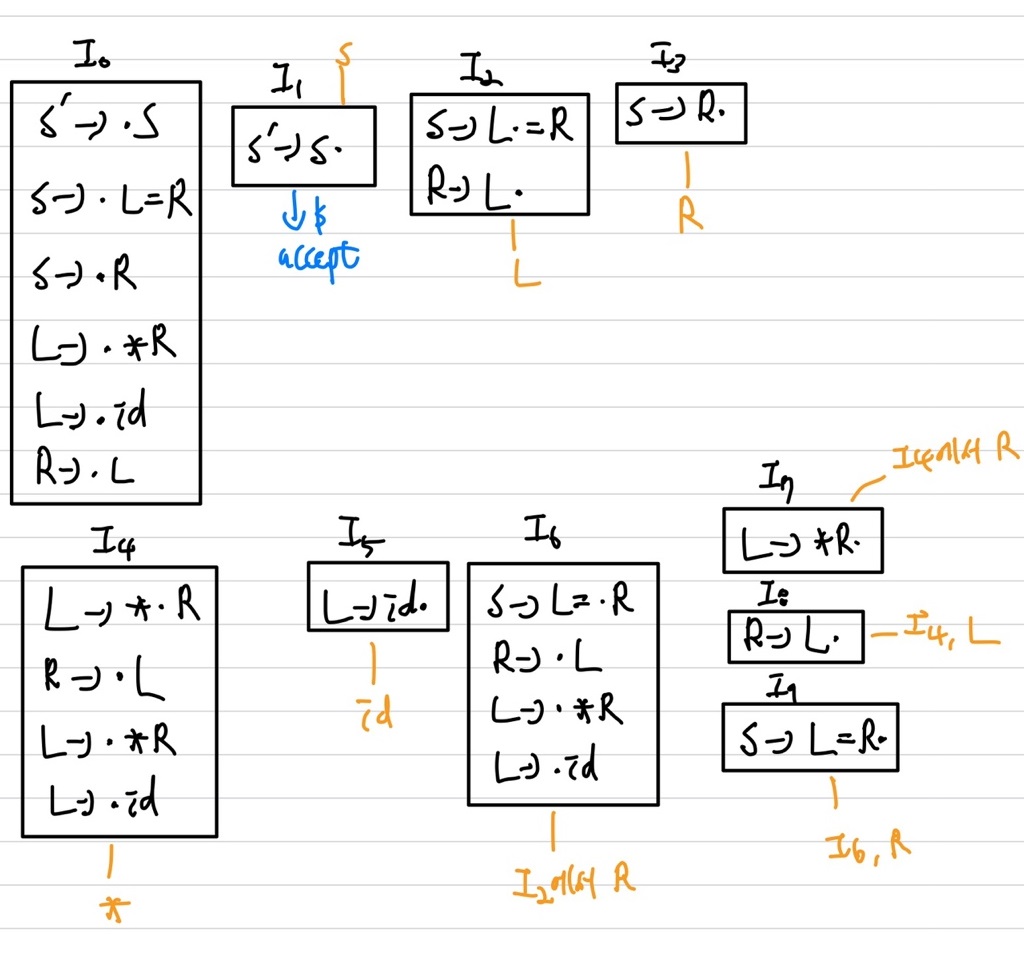 I₀
S' → ·S
S → · L=R
S → ·R
L → · *R
L → · id
R → · L
S
I₁
S' → S·
↓ $
accept
I₂
S → L·=R
R → L·
L
I₃
S → R·
R
I₄
L → *· R
R → · L
L → · *R
L → · id
*
I₅
L → id·
id
I₆
S → L= ·R
R → · L
L → · *R
L → · id
I₂에서 R
I₄에서 R
I₇
L → *R·
I₈
R → L·
I₄, L
I₉
S → L=R·
I₆, R